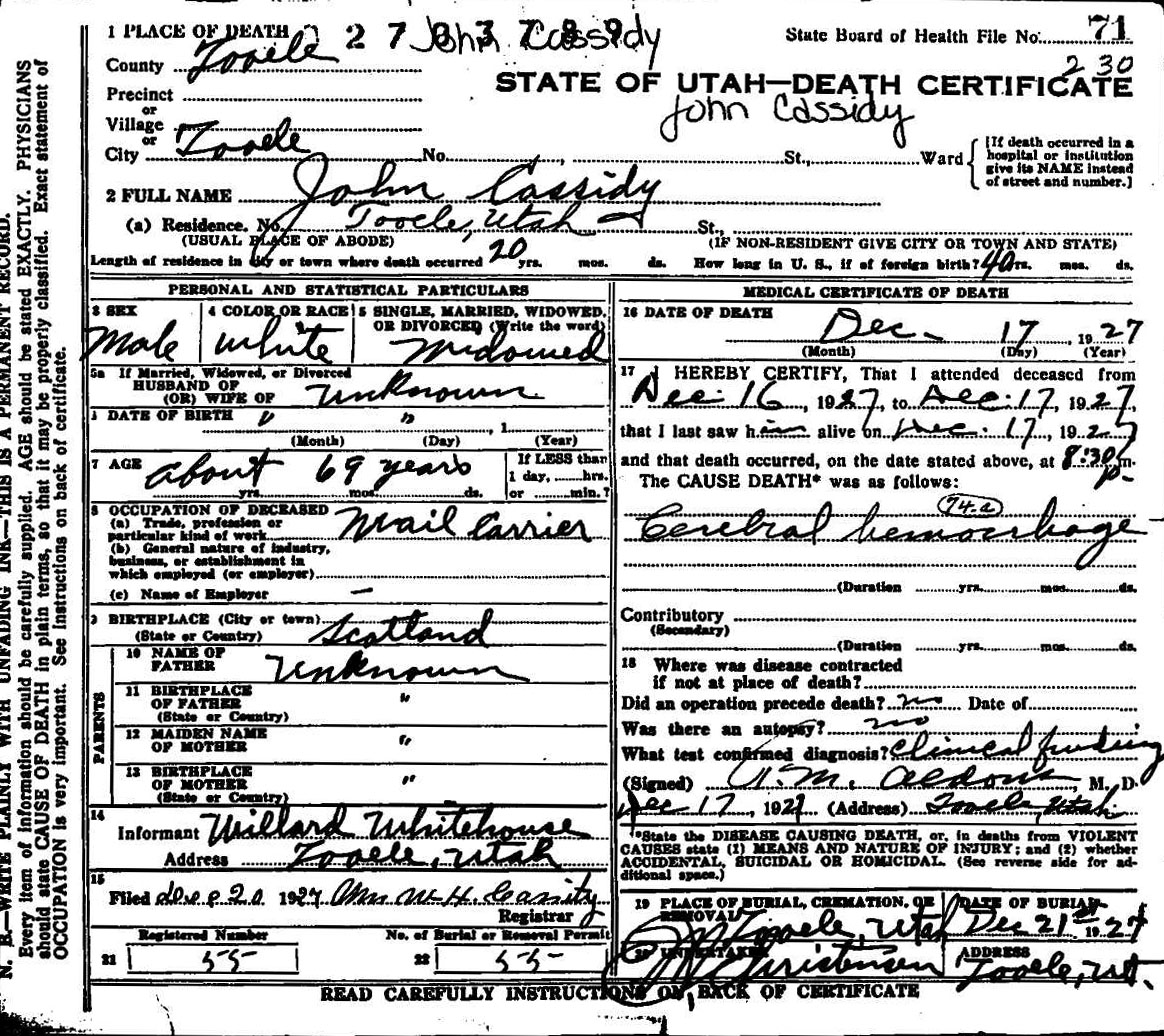 1 PLACE OF DEATH 2 7 John Cassidy State Board of Health File No. 71
County Tooele 230
STATE OF UTAH—DEATH CERTIFICATE
Precinct John Cassidy
or
Village
or
City Tooele No. , St., Ward [If death occurred in a hospital or institution give its NAME instead of street and number.]
2 FULL NAME John Cassidy
(a) Residence. No. Tooele, Utah St.,
(USUAL PLACE OF ABODE) (IF NON-RESIDENT GIVE CITY OR TOWN AND STATE)
Length of residence in city or town where death occurred 20 yrs. mos. ds. How long in U. S., if of foreign birth? 40 yrs. mos. ds.
PERSONAL AND STATISTICAL PARTICULARS
3 SEX 4 COLOR OR RACE 5 SINGLE, MARRIED, WIDOWED, OR DIVORCED (Write the word)
Male White Widowed
5a If Married, Widowed, or Divorced
HUSBAND OF
(OR) WIFE OF Unknown
DATE OF BIRTH " " , 1
(Month) (Day) (Year)
7 AGE about 69 years If LESS than
1 day, hrs.
yrs. mos. ds. or min.?
8 OCCUPATION OF DECEASED
(a) Trade, profession or
particular kind of work Mail Carrier
(b) General nature of industry,
business, or establishment in
which employed (or employer)
(c) Name of Employer —
9 BIRTHPLACE (City or town)
(State or Country) Scotland
PARENTS
10 NAME OF
FATHER Unknown
11 BIRTHPLACE
OF FATHER "
(State or Country)
12 MAIDEN NAME
OF MOTHER "
13 BIRTHPLACE
OF MOTHER "
(State or Country)
14
Informant Millard Whitehouse
Address Tooele, Utah
15
Filed Dec 20 1927 Mrs W. H. Cassity
Registrar
Registered Number No. of Burial or Removal Permit
21 55 22 55
MEDICAL CERTIFICATE OF DEATH
16 DATE OF DEATH Dec 17, 1927
(Month) (Day) (Year)
17 I HEREBY CERTIFY, That I attended deceased from
Dec 16, 1927, to Dec. 17, 1927,
that I last saw him alive on Dec. 17, 1927
and that death occurred, on the date stated above, at 8:30 p m.
The CAUSE DEATH* was as follows:
74.a
Cerebral hemorrhage
(Duration yrs. mos. ds.
Contributory
(Secondary)
(Duration yrs. mos. ds.
18 Where was disease contracted
if not at place of death?
Did an operation precede death? no Date of
Was there an autopsy? no
What test confirmed diagnosis? Clinical finding
(Signed) M. D.
Dec 17, 1927 (Address) Tooele, Utah
*State the DISEASE CAUSING DEATH, or, in deaths from VIOLENT
CAUSES state (1) MEANS AND NATURE OF INJURY; and (2) whether
ACCIDENTAL, SUICIDAL OR HOMICIDAL. (See reverse side for ad-
ditional space.)
19 PLACE OF BURIAL, CREMATION, OR REMOVAL DATE OF BURIAL
Tooele, Utah Dec 21 1927
20 UNDERTAKER ADDRESS
Christensen Tooele, Ut.
READ CAREFULLY INSTRUCTIONS ON BACK OF CERTIFICATE
N. B.—WRITE PLAINLY WITH UNFADING INK—THIS IS A PERMANENT RECORD.
Every item of information should be carefully supplied. AGE should be stated EXACTLY. PHYSICIANS
should state CAUSE OF DEATH in plain terms, so that it may be properly classified. Exact statement of
OCCUPATION is very important. See instructions on back of certificate.